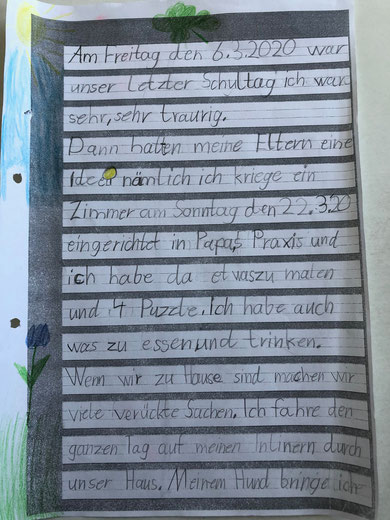 Am Freitag den 6.3.2020 war
unser Letzter Schultag ich war
sehr, sehr traurig.
Dann hatten meine Eltern eine
Idee nämlich ich kriege ein
Zimmer am Sonntag den 22.3.20
eingerichtet in Papas Praxis und
ich habe da etwaszu malen
und 4 Puzzle. Ich habe auch
was zu essen und trinken.
Wenn wir zu Hause sind machen wir
viele verückte Sachen. Ich fahre den
ganzen Tag auf meinen Inlinern durch
unser Haus. Meinem Hund bringe ich